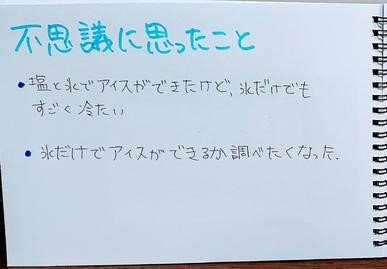 不思議に思ったこと
• 塩と氷でアイスができたけど、氷だけでも
すごく冷たい
• 氷だけでアイスができるか調べたくなった.